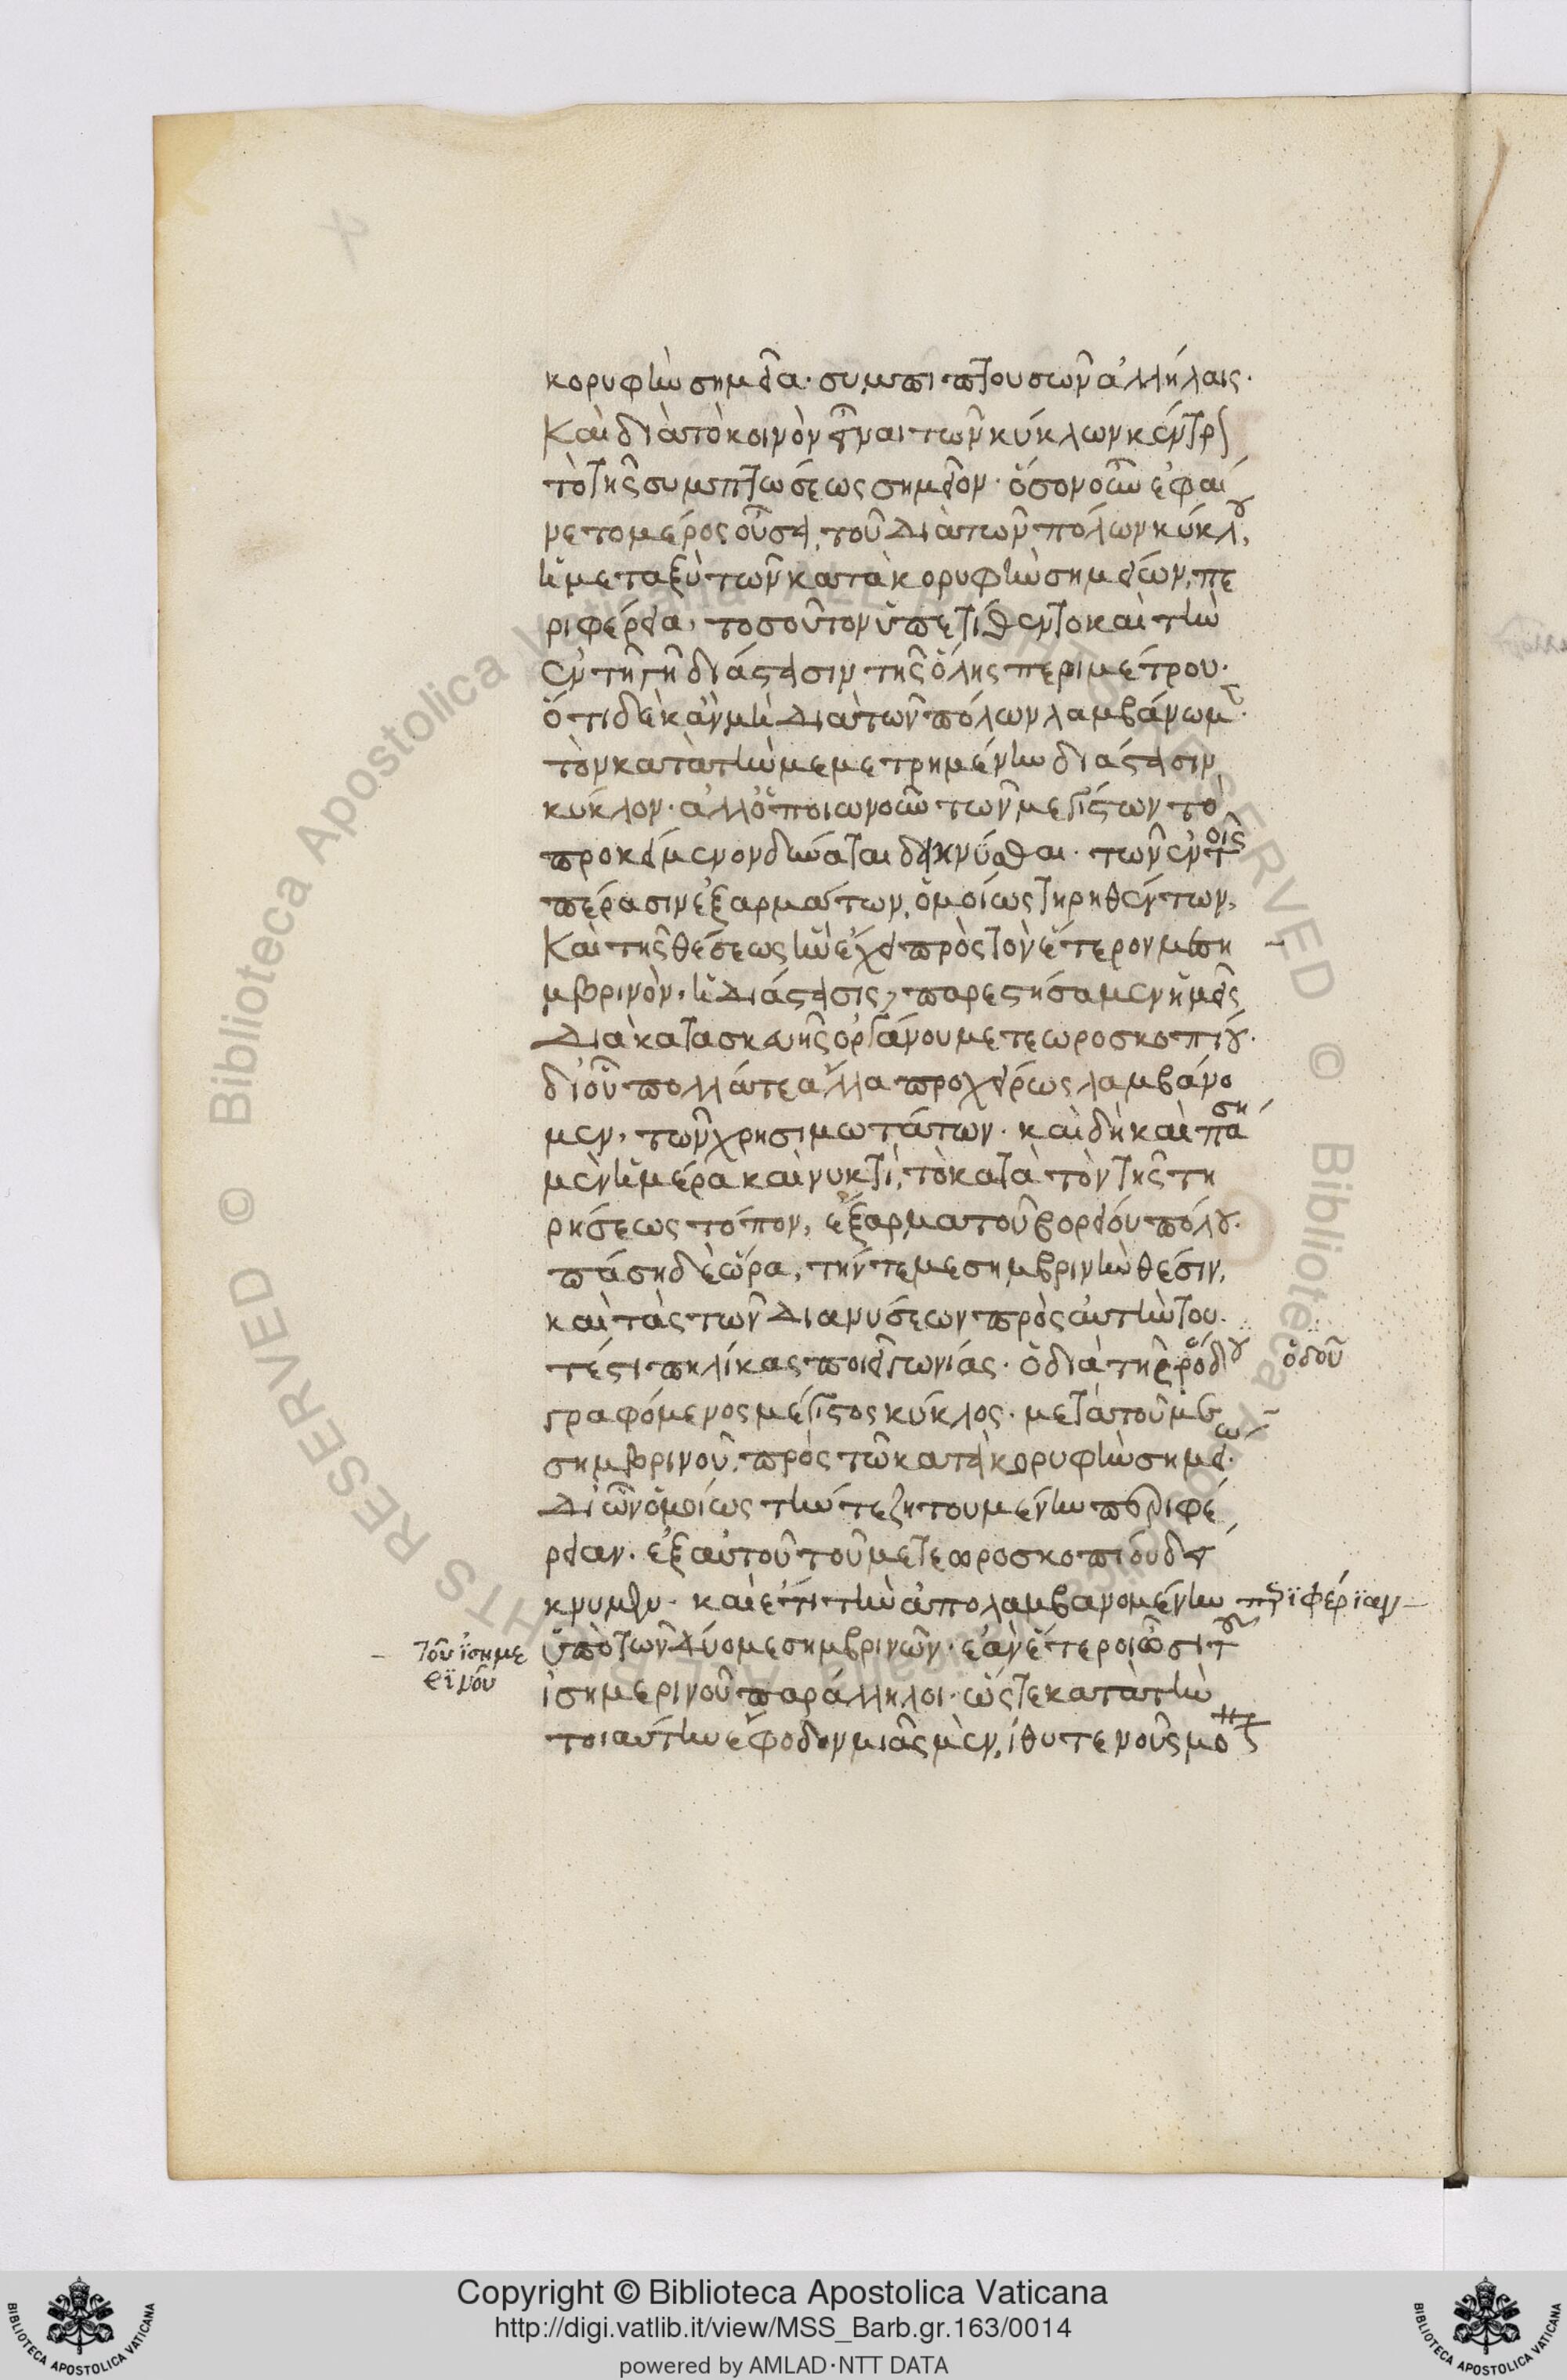 κορυφὴν σημεῖα· συμπιπτουσῶν ἀλλήλαις·
Καὶ διὰ τὸ κοινὸν εἶναι τῶν κύκλων κέντρον
τὸ τῆς συμπτώσεως σημεῖον· ὅσον οὖν ἐφαί
νετο μέρος οὖσα, τοῦ διὰ τῶν πόλων κύκλου,
ἡ μεταξὺ τῶν κατὰ κορυφὴν σημείων, πε
ριφέρεια, τοσοῦτον ὑπετίθεντο καὶ τὴν
ἐν τῇ γῇ διάστασιν τῆς ὅλης περιμέτρου·
ὅτι δὲ κἂν μὴ διὰ τῶν πόλων λαμβάνωμεν·
τὸν κατὰ τὴν μεμετρημένην διάστασιν
κύκλον· ἀλλ' ὁποιωνοῦν τῶν μεγίστων τὸ
προκείμενον δύναται δείκνυσθαι· τῶν ἐν τοῖς
πέρασιν ἐξαρμάτων, ὁμοίως τηρηθέντων,
Καὶ τῆς θέσεως ἣν ἔχει πρὸς τὸν ἕτερον μεση
μβρινὸν, ἡ διάστασις, παρεστήσαμεν ἡμεῖς
διὰ κατασκευῆς ὀργάνου μετεωροσκοπίου·
δι' οὗ πολλά τε ἄλλα προχείρως λαμβάνο
μεν, τῶν χρησιμωτάτων· καὶ δὴ καὶ πάσῃ
μὲν ἡμέρᾳ καὶ νυκτὶ, τὸ κατὰ τὸν τῆς τη
ρήσεως τόπον, ἔξαρμα τοῦ βορείου πόλου·
πάσῃ δὲ ὥρᾳ, τήν τε μεσημβρινὴν θέσιν,
καὶ τὰς τῶν διανύσεων πρὸς αὐτὴν του
τέστι πηλίκας ποιεῖ γωνίας· ὁ διὰ τῆς ὁδοῦ
ὁδοῦ
γραφόμενος μέγιστος κύκλος· μετὰ τοῦ με
σημβρινοῦ, πρὸς τῷ κατὰ κορυφὴν σημείῳ·
δι' ὧν ὁμοίως τήν τε ζητουμένην περιφέ
ρειαν· ἐξ αὐτοῦ τοῦ μετεωροσκοπίου δεί
κνυμεν· καὶ ἔτι τὴν ἀπολαμβανομένην
πεϊφέρϊαν
ὑπὸ τῶν δύο μεσημβρινῶν· ἐὰν ἕτεροι ὦσι τοῦ
τοῦ ϊσημε
ϱϊνοῦ
ἰσημερινοῦ παράλληλοι· ὥστε κατὰ τὴν
τοιαύτην ἔφοδον μιᾶς μὲν, ἰθυτενοῦς μο
Copyright © Biblioteca Apostolica Vaticana
http://digi.vatlib.it/view/MSS_Barb.gr.163/0014
powered by AMLAD·NTT DATA